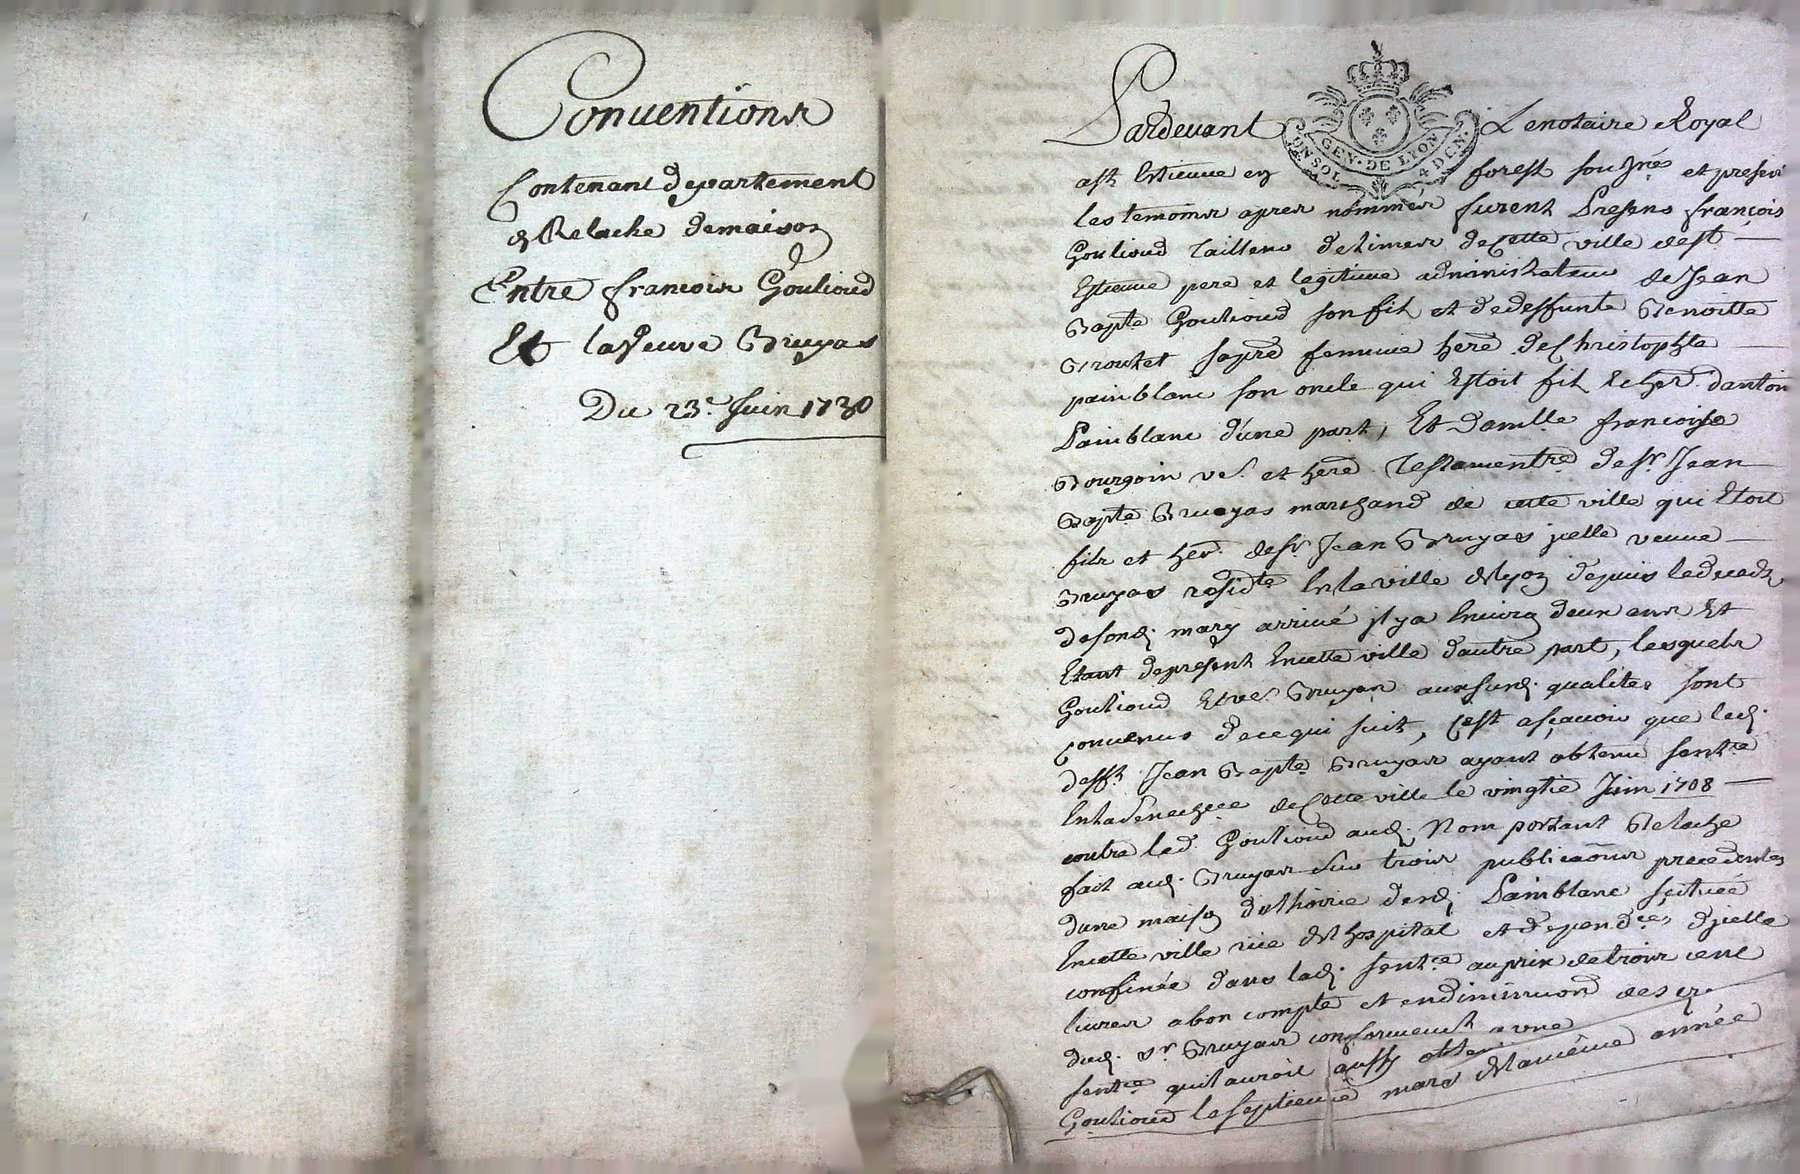 Conventions
Contenant departement
& Relache demaison
Entre francois Goulioud
Et laveuve Bruyas
Du 23e Juin 1730
GEN · DE LYON
4 D CN
Pardevant Lenotaire Royal
a st Estienne en forest sousné et presens
les temoins apres nommes furent Presens françois
Goulioud Tailleur delimes decette ville dest
Estienne pere et legitime administrateur de Jean
Bapte Goulioud son fils et dedeffunte Benoitte
sapre femme here deChristophle
painblanc son oncle qui Estoit fils & her danton
Painblanc d'une part, Et damlle francoise
Bourgoin ve et here Testamentre desr Jean
Bapte Bruyas marchand de cette ville qui Etoit
fils et her desr Jean Bruyas jcelle veuve
Bruyas reside en laville delyon depuis ledeced
desond mary arrivé jl ya Environ deux ans Et
Etant depresent Encette ville d'autre part, lesquels
Goulioud et ve Bruyas auxsusd qualites sont
convenus decequi suit, C'est asçavoir que led
defft Jean Bapte Bruyas ayant obtenu sentce
En la Senechcee decette ville le vingtie Juin 1708
contre led Goulioud aud Nom portant Relache
fait aud Bruyas sur trois publicaons precedentes
d'une maison delhoirie dud Painblanc scituée
Encette ville rüe delhospital et dependces d'jcelle
confinée dans lad sentce auprix detrois cent
livres abon compte et endiminuon des
dud sr Bruyas conformement a une
sentce quil auroit aussy obtenu
Goulioud leseptieme mars delameme année